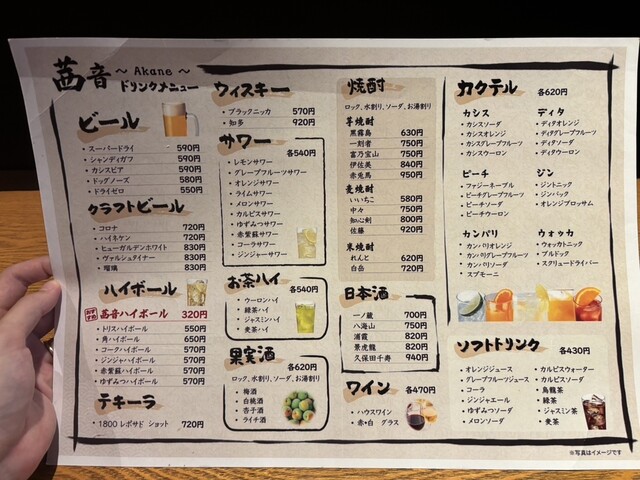 茜音 ～ Akane ～
ドリンクメニュー
ビール
・スーパードライ 590円
・シャンディガフ 590円
・カシスビア 590円
・ドッグノーズ 580円
・ドライゼロ 550円
クラフトビール
・コロナ 720円
・ハイネケン 720円
・ヒューガルデンホワイト 830円
・ヴァルシュタイナー 830円
・瑠璃 830円
ハイボール
おすすめ 茜音ハイボール 320円
・トリスハイボール 550円
・角ハイボール 650円
・コークハイボール 570円
・ジンジャハイボール 570円
・赤紫蘇ハイボール 570円
・ゆずみつハイボール 570円
テキーラ
・1800 レポサド ショット 720円
ウィスキー
・ブラックニッカ 570円
・知多 920円
サワー
各540円
・レモンサワー
・グレープフルーツサワー
・オレンジサワー
・ライムサワー
・メロンサワー
・カルピスサワー
・ゆずみつサワー
・赤紫蘇サワー
・コーラサワー
・ジンジャーサワー
お茶ハイ 各540円
・ウーロンハイ
・緑茶ハイ
・ジャスミンハイ
・麦茶ハイ
果実酒 各620円
ロック、水割り、ソーダ、お湯割り
・梅酒
・白桃酒
・杏子酒
・ライチ酒
焼酎
ロック、水割り、ソーダ、お湯割り
芋焼酎
黒霧島 630円
一刻者 750円
富乃宝山 750円
伊佐美 840円
赤兎馬 950円
麦焼酎
いいちこ 580円
中々 750円
知心剣 800円
佐藤 920円
米焼酎
れんと 620円
白岳 720円
日本酒
一ノ蔵 700円
八海山 750円
浦霞 820円
景虎龍 820円
久保田千寿 940円
ワイン 各470円
・ハウスワイン
・赤・白 グラス
カクテル 各620円
カシス
・カシスソーダ
・カシスオレンジ
・カシスグレープフルーツ
・カシスウーロン
ディタ
・ディタオレンジ
・ディタグレープフルーツ
・ディタソーダ
・ディタウーロン
ピーチ
・ファジーネーブル
・ピーチグレープフルーツ
・ピーチソーダ
・ピーチウーロン
ジン
・ジントニック
・ジンバック
・オレンジブロッサム
カンパリ
・カンパリオレンジ
・カンパリグレープフルーツ
・カンパリソーダ
・スプモーニ
ウォッカ
・ウォッカトニック
・ブルドック
・スクリュードライバー
ソフトドリンク 各430円
・オレンジジュース
・グレープフルーツジュース
・コーラ
・ジンジャエール
・ゆずみつソーダ
・メロンソーダ
・カルピスウォーター
・カルピスソーダ
・烏龍茶
・緑茶
・ジャスミン茶
・麦茶
※写真はイメージです